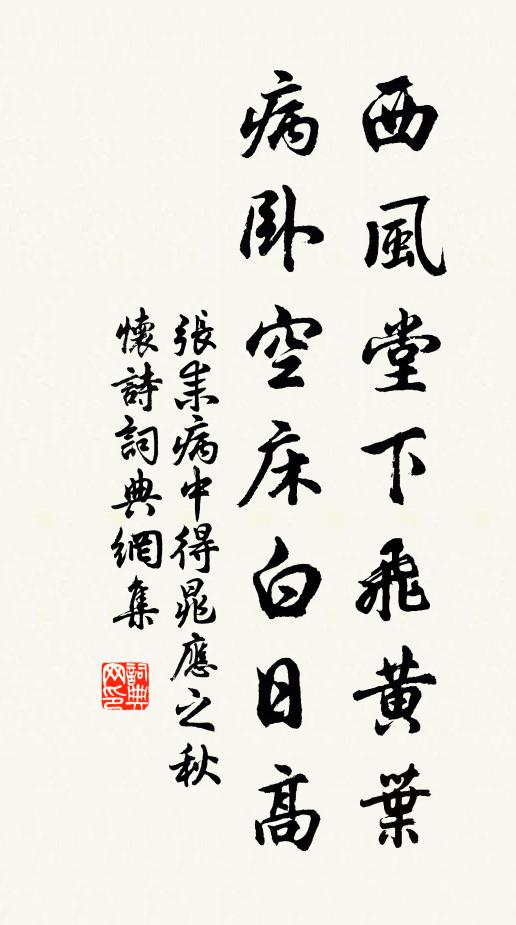 西風堂下飛黃葉
病卧空床白日高
張耒病中得晁應之秋
懷詩詞典網集
詞典
网印